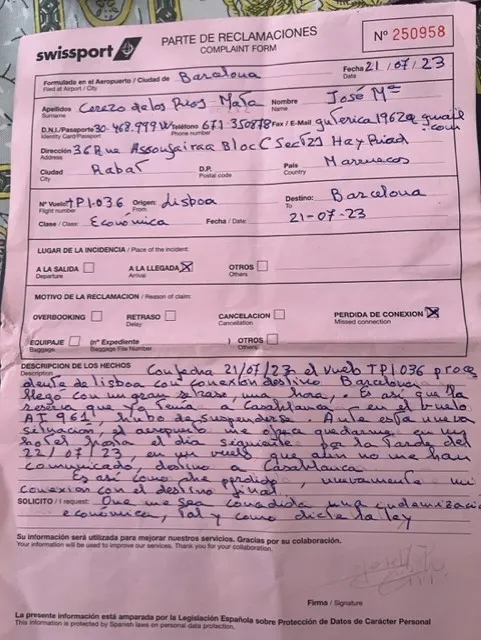 swissport
PARTE DE RECLAMACIONES
COMPLAINT FORM
Nº 250958
Formulado en el Aeropuerto / Ciudad de Barcelona
Filed at Airport / City
Fecha 21/07/23
Date
Apellidos Cerezo de los Rios-Mata Nombre José Mª
Surname Name
D.N.I./Pasaporte 30-468.999W Teléfono 671-350878 Fax / E-Mail guterica1962@gmail.com
Identity Card/Passport Phone number
Dirección 36 Rue Assougairaa Bloc C Sect 21 Hay Riad
Address
Ciudad Rabat D.P. País Marruecos
City Postal code Country
Nº Vuelo TP1.036 Origen: Lisboa Destino: Barcelona
Flight number From To
Clase / Class: Económica Fecha / Date: 21-07-23
LUGAR DE LA INCIDENCIA / Place of the incident:
A LA SALIDA A LA LLEGADA X OTROS
Departure Arrival Others
MOTIVO DE LA RECLAMACION / Reason of claim:
OVERBOOKING RETRASO CANCELACION PERDIDA DE CONEXION X
Delay Cancellation Missed connection
EQUIPAJE (nº Expediente ) OTROS
Baggage Baggage File Number Others
DESCRIPCION DE LOS HECHOS Con fecha 21/07/23 el vuelo TP1036 proce
Description
dente de lisboa con conexión destino Barcelona
llegó con un gran retraso, una hora,. Es así que la
reserva que yo tenía a Casablanca en el vuelo
AT 961, hubo de suspenderse. Ante esta nueva
situación, el aeropuerto me ubica quedarme en un
hotel hasta el día siguiente por la tarde del
22/07/23, en un vuelo que aún no me han
comunicado, destino a Casablanca.
Es así como he perdido, nuevamente mi
conexión con destino final.
SOLICITO / I request: Que me sea concedida una indemnizació
económica, tal y como dicte la ley
Su información será utilizada para mejorar nuestros servicios. Gracias por su colaboración.
Your information will be used to improve our services. Thank you for your collaboration.
Firma / Signature
La presente información está amparada por la Legislación Española sobre Protección de Datos de Carácter Personal
This information is protected by Spanish laws on personal data protection.